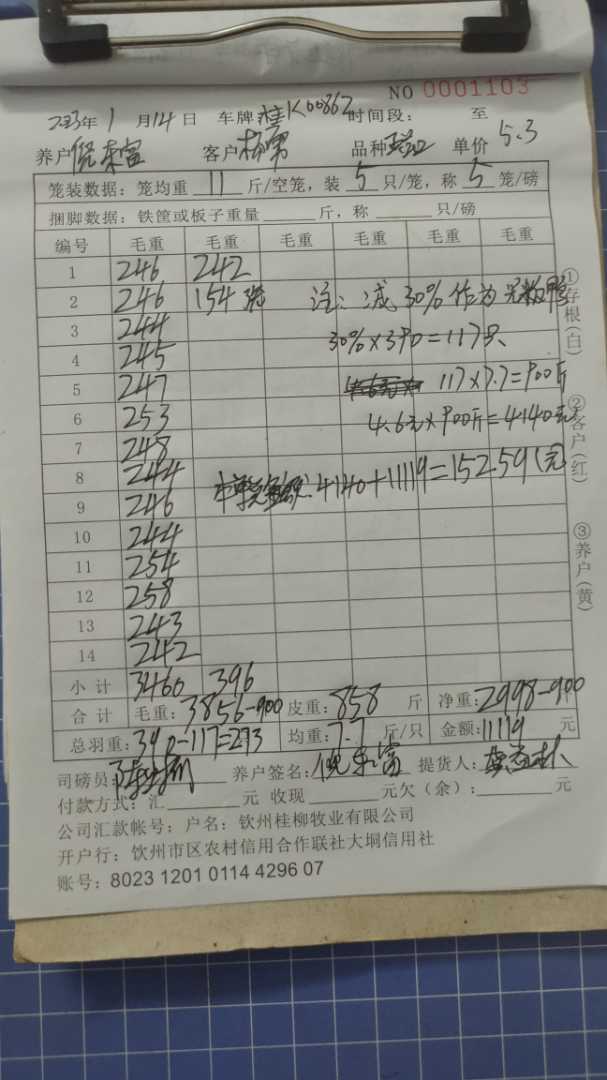 NO 0001103
2023年1月14日 车牌:桂K00862 时间段: 至
养户 倪东富 客户 品种 单价 5.3
笼装数据: 笼均重 11 斤/空笼, 装 5 只/笼, 称 5 笼/磅
捆脚数据: 铁筐或板子重量 斤, 称 只/磅
编号 毛重 毛重 毛重 毛重 毛重 毛重
1 246 242
2 246 154 注: 减30%作为 鸭
3 244 30%×390=117只
4 245
5 247 117×7.7=900斤
6 253 4.6元×900斤=4140元
7 248
8 244 4140+11119=152.59(元)
9 246
10 244
11 254
12 258
13 243
14 242
小计 3460 396
合计 毛重: 3856-900 皮重: 858 斤 净重: 2998-900
总羽重: 390-117=273 均重: 7.7 斤/只 金额: 11119 元
司磅员: 养户签名: 倪东富 提货人:
付款方式: 汇 元 收现 元欠(余): 元
公司汇款帐号: 户名: 钦州桂柳牧业有限公司
开户行: 钦州市区农村信用合作联社大垌信用社
账号: 8023 1201 0114 4296 07
①存根(白)
②客户(红)
③养户(黄)